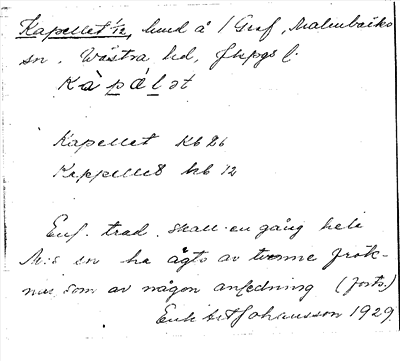 Kapellet 1/12, hmd å 1 Graf, Malmbäcks
sn. Västra hd, Jkpgs l.
Kàpálət
Kapellet Kb 26
Kappellet kb 12
Enl. trad. skall en gång hela
M:s sn ha ägts av tvenne frök-
nar som av någon anledning (forts.)
Erik Johansson 1929.